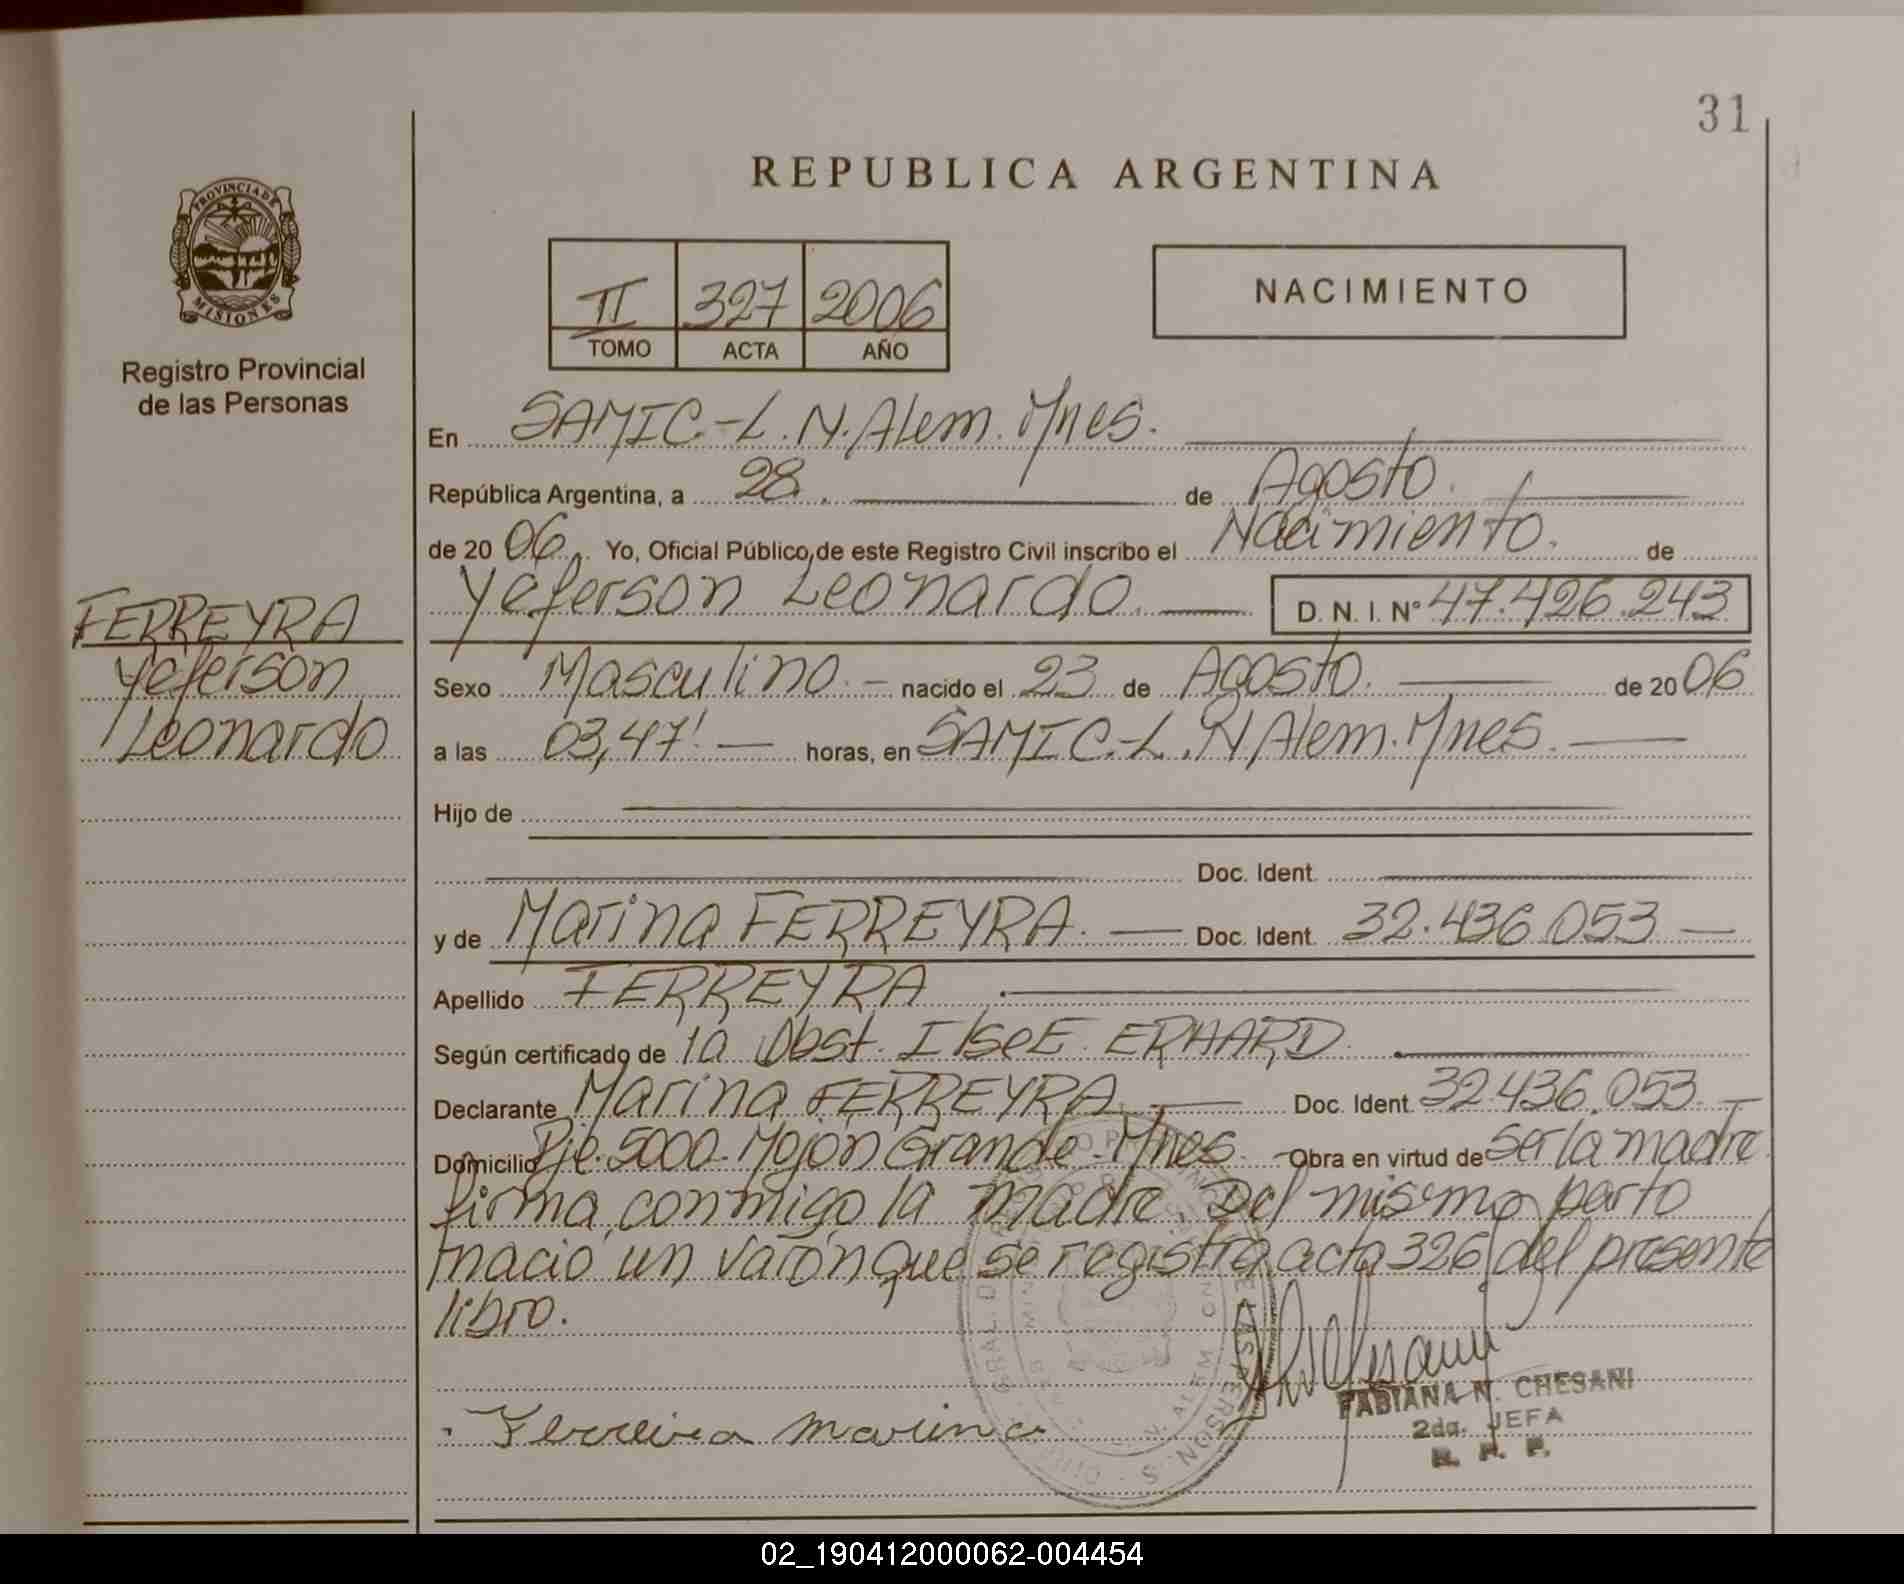 31
REPUBLICA ARGENTINA
PROVINCIA DE
MISIONES
Registro Provincial
de las Personas
II 327 2006
TOMO ACTA AÑO
NACIMIENTO
En SAMIC.-L.N.Alem.Mnes.
República Argentina, a 28. de Agosto.
de 20 06. Yo, Oficial Público, de este Registro Civil inscribo el Nacimiento. de
Yeferson Leonardo. D. N. I. N° 47.426.243
FERREYRA
Yeferson
Leonardo
Sexo Masculino.- nacido el 23 de Agosto. de 20 06
a las 03,47'.- horas, en SAMIC.-L.N Alem.Mnes.
Hijo de
Doc. Ident.
y de Marina FERREYRA. Doc. Ident. 32.436.053
Apellido FERREYRA
Según certificado de la Obst. Ilse E. ERHARD.
Declarante Marina FERREYRA. Doc. Ident. 32.436.053.
Domicilio Pje.5000-Mojón Grande-Mnes. Obra en virtud de ser la madre
firma conmigo la madre. Del mismo parto
nacio un varón que se registra acta 326 del presente
libro.
Ferreira marina
FABIANA N. CHESANI
2da. JEFA
R. P. P.
02_190412000062-004454